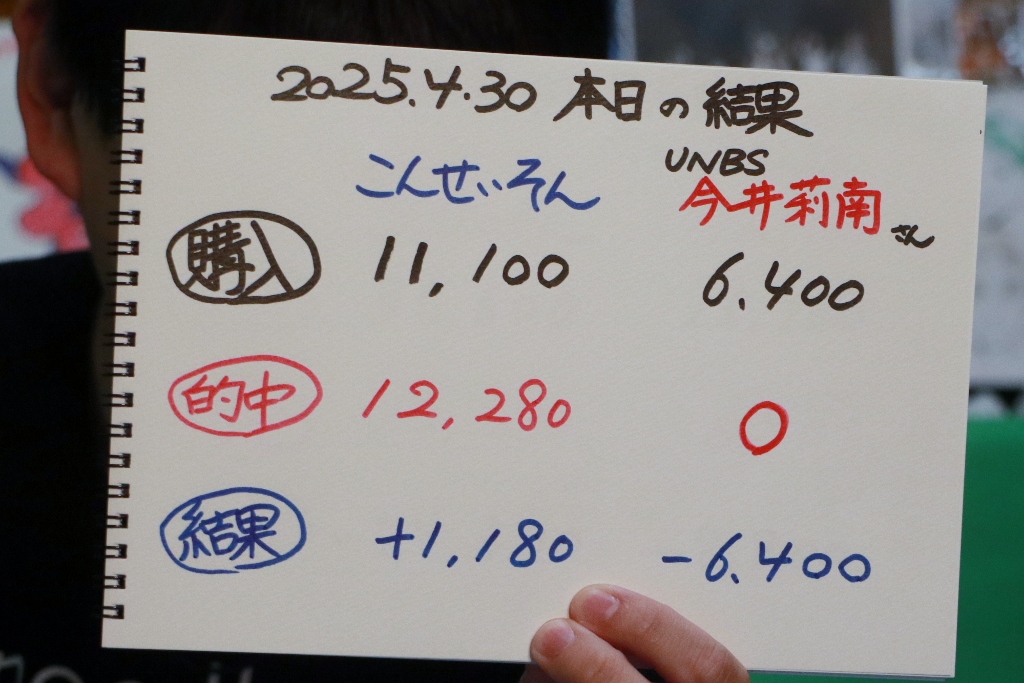 2025.4.30 本日の結果
こんせいそん UNBS 今井莉南さん
購入 11,100 6.400
的中 12,280 0
結果 +1,180 -6.400